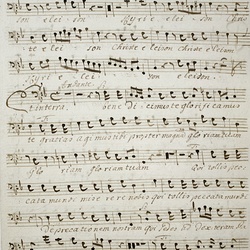 son elei son Kyrie elei son
te elei son Christe eleison Christe eleison
Kyrie elei son eleison.
Andante
et in terra bene dicimus te glorificamus
te gratias agimus tibi propter magnam gloriam tuam
gloriam gloriam tuam Qui tollis pec
cata mundi miserere nobis Qui tollis peccata mundi
deprecationem nostram Qui sedes ad dexteram